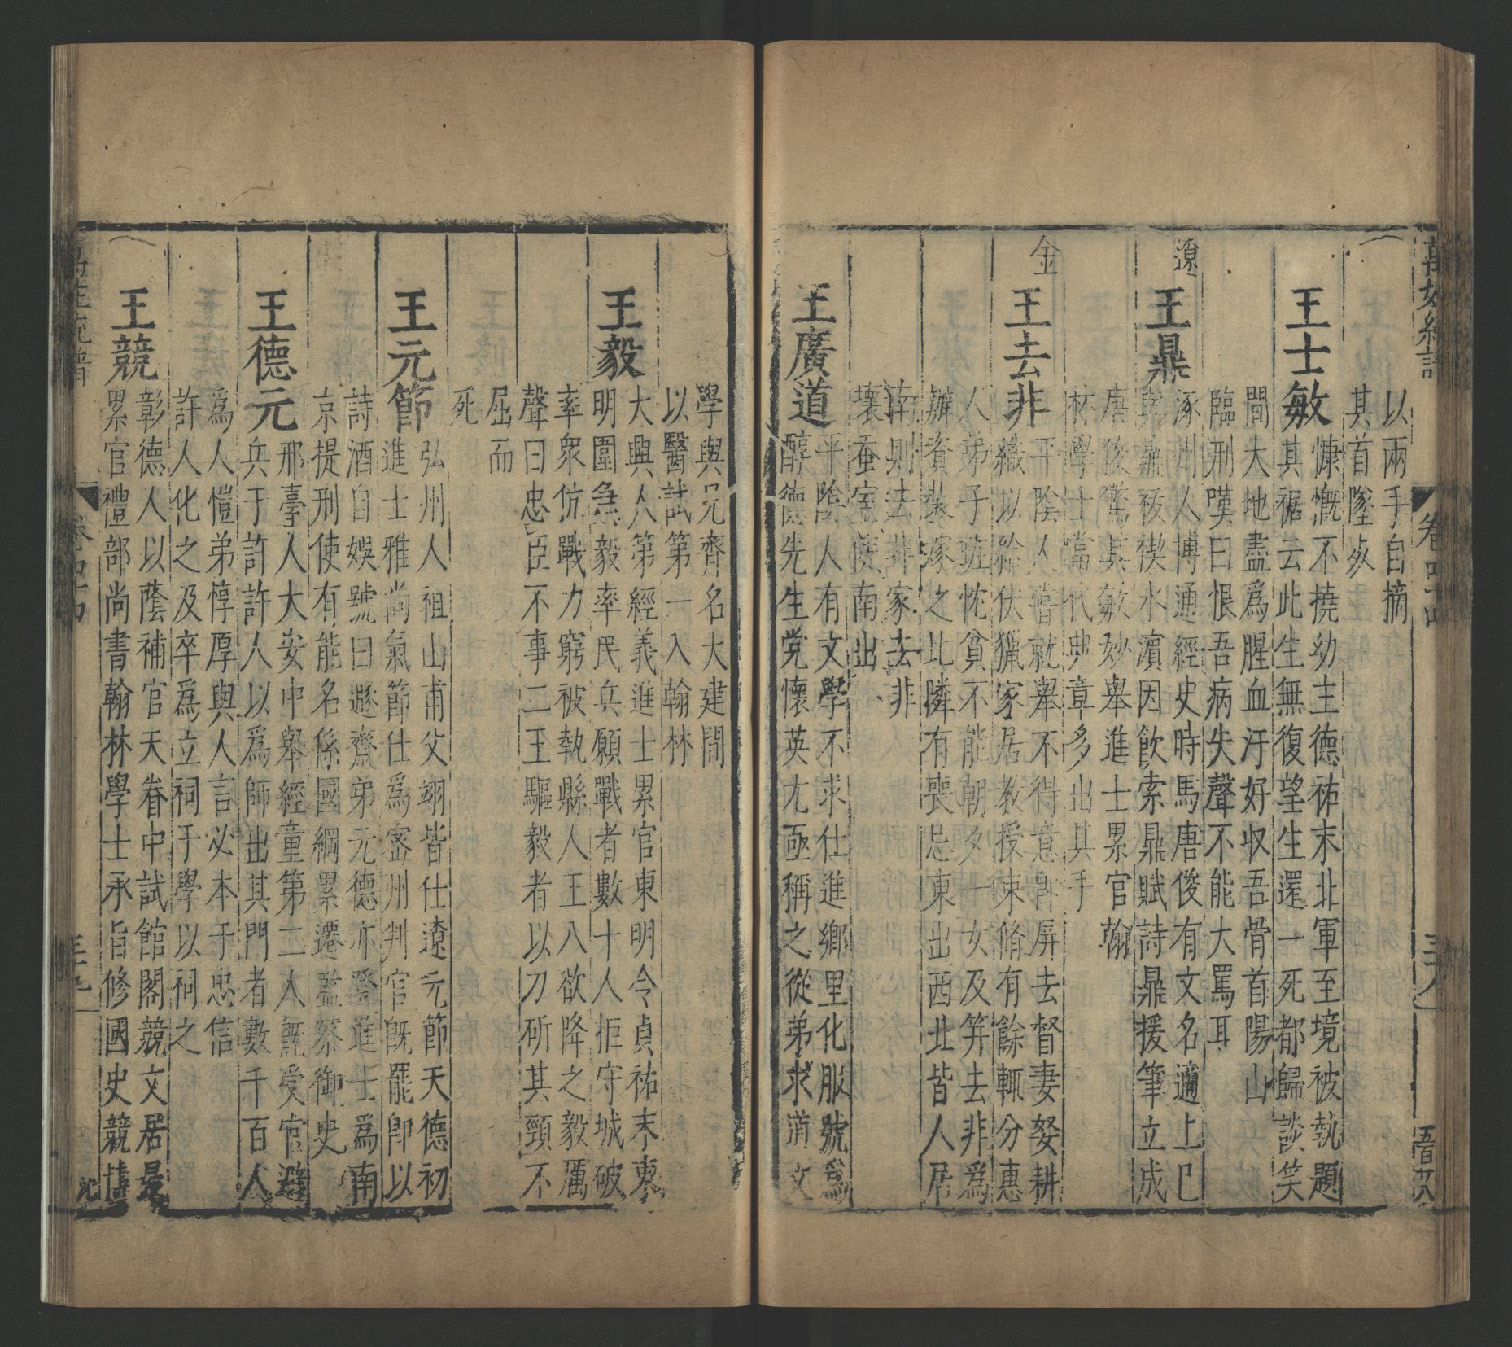 萬姓統譜
卷四十四
三十八
吾八
以兩手自摘
其首墜歿
王士敏
慷慨不撓幼主德祐末北軍至境被執題
其裾去此生無復望生還一死都歸談笑
間大地盡為腥血汙好收吾骨首陽山
臨刑嘆曰恨吾病失聲不能大罵耳
遼
王鼎
涿州人博通經史時馬唐俊有文名適上巳
與鼎祓禊水濱因飲索鼎賦詩鼎援筆立成
唐俊驚其敏妙舉進士累官翰
林學士當代典章多出其手
金
王去非
平陰人嘗就舉不得意即屏去督妻孥耕
織以給伏獵家居教授束脩有餘輒分惠
人弟子班忱貧不能朝夕一女及笄去非為
辦資裝嫁之北隣有喪忌東出西北皆人居
南則去非家去非
壞蚕室使南出
王廣道
平陰人有文學不求仕進鄉里化服號為
醇德先生党懷英尤亟稱之從弟求道文
學與兄齊名大建間
以醫試第一入翰林
王毅
大興人第經義進士累官東明令貞祐末東
明圍急毅率民兵願戰者數十人拒守城破
率衆伉戰力窮被執縣人王八欲降之毅厲
聲曰忠臣不事二王驅毅者以刀斫其頸不
屈而
死
王元節
弘州人祖山甫父翊皆仕遼元節天德初
進士雅尚氣節仕為密州判官既罷卽以
詩酒自娛號曰遯齋弟元德亦登進士為南
京提刑使有能名係國綱累遷監察御史
王德元
邢臺人大安中舉經童第二人既受官避
兵于許許人以為師出其門者數千百人
為人愷弟惇厚與人言必本于忠信
許人化之及卒為立祠于學以祠之
王競
彰德人以蔭補官天眷中試館閣競文居最
累官禮部尚書翰林學士承旨修國史競博